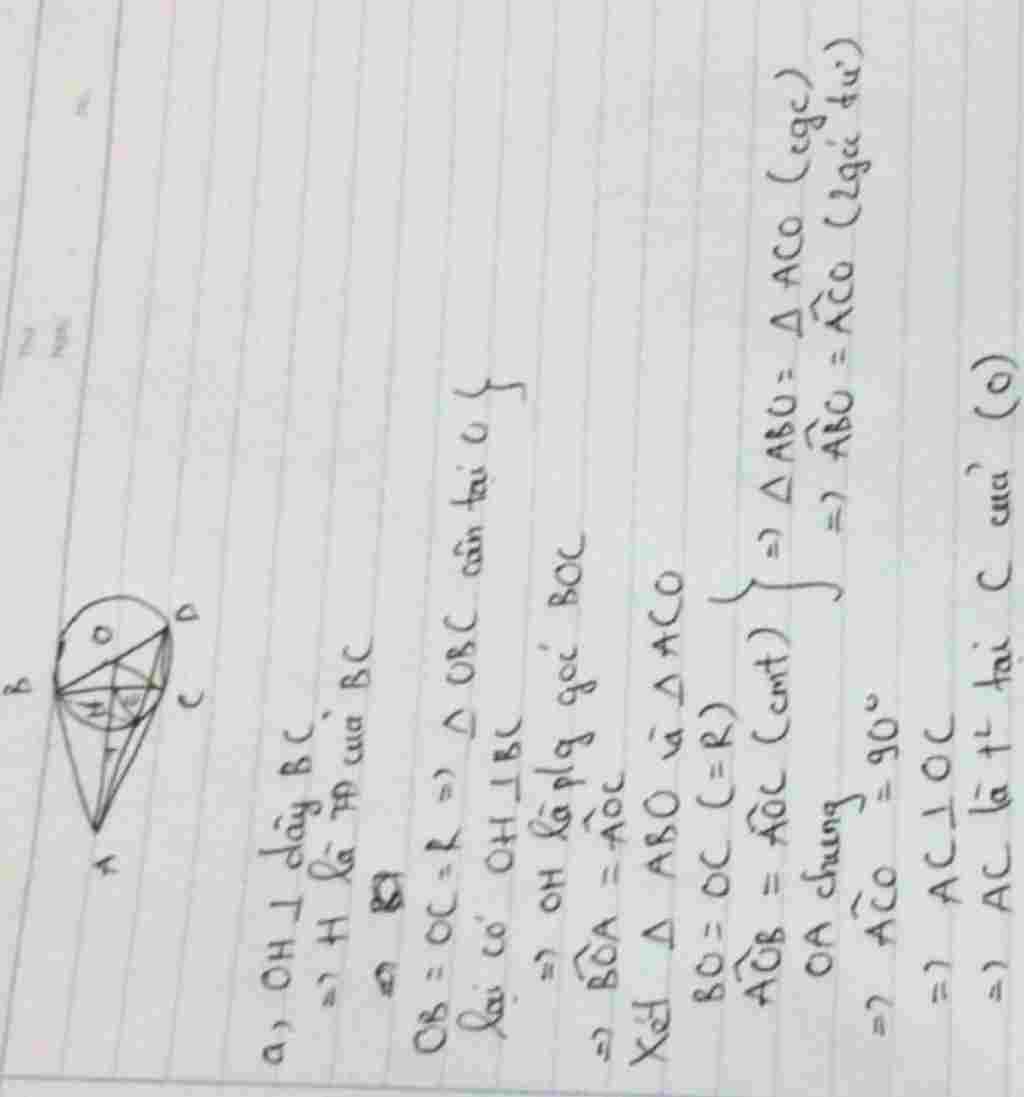 B
O
H
E
I
A
C
D
a, OH ⊥ dây BC
=> H là TĐ của BC
=>
OB = OC = R => Δ OBC cân tại O }
lại có OH ⊥ BC
=> OH là p/g góc BOC
=> BÔA = AÔC
Xét Δ ABO và Δ ACO
BO = OC (=R)
AÔB = AÔC (cmt) } => Δ ABO = Δ ACO (cgc)
OA chung => AB̂O = AĈO (2 góc tư')
=> AĈO = 90°
=> AC ⊥ OC
=> AC là t² tại C của (O)